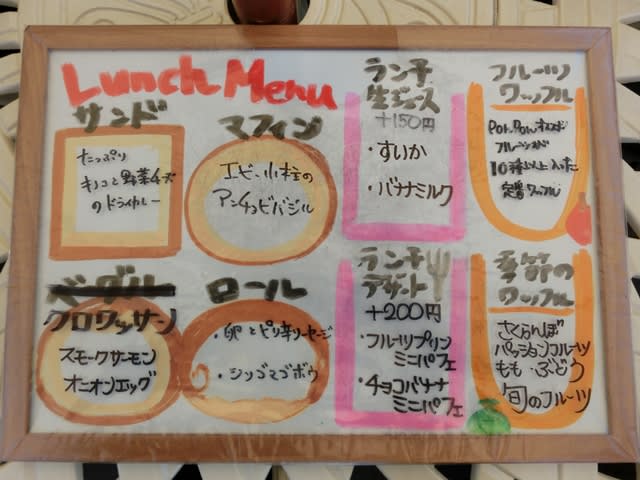 Lunch Menu
サンド
たっぷり
キノコと野菜チーズ
のドライカレー
マフィン
エビ、小柱の
アンチョビバジル
ランチ
生ジュース
+150円
・すいか
・バナナミルク
フルーツ
ワッフル
フルーツが
10種以上入った
定番ワッフル
ベーグル
クロワッサン
スモークサーモン
オニオンエッグ
ロール
・卵とピリ辛ソーセージ
・シソゴマゴボウ
ランチ
デザート
+200円
・フルーツプリン
ミニパフェ
・チョコバナナ
ミニパフェ
季節の
ワッフル
さくらんぼ
パッションフルーツ
もも・ぶどう
旬のフルーツ